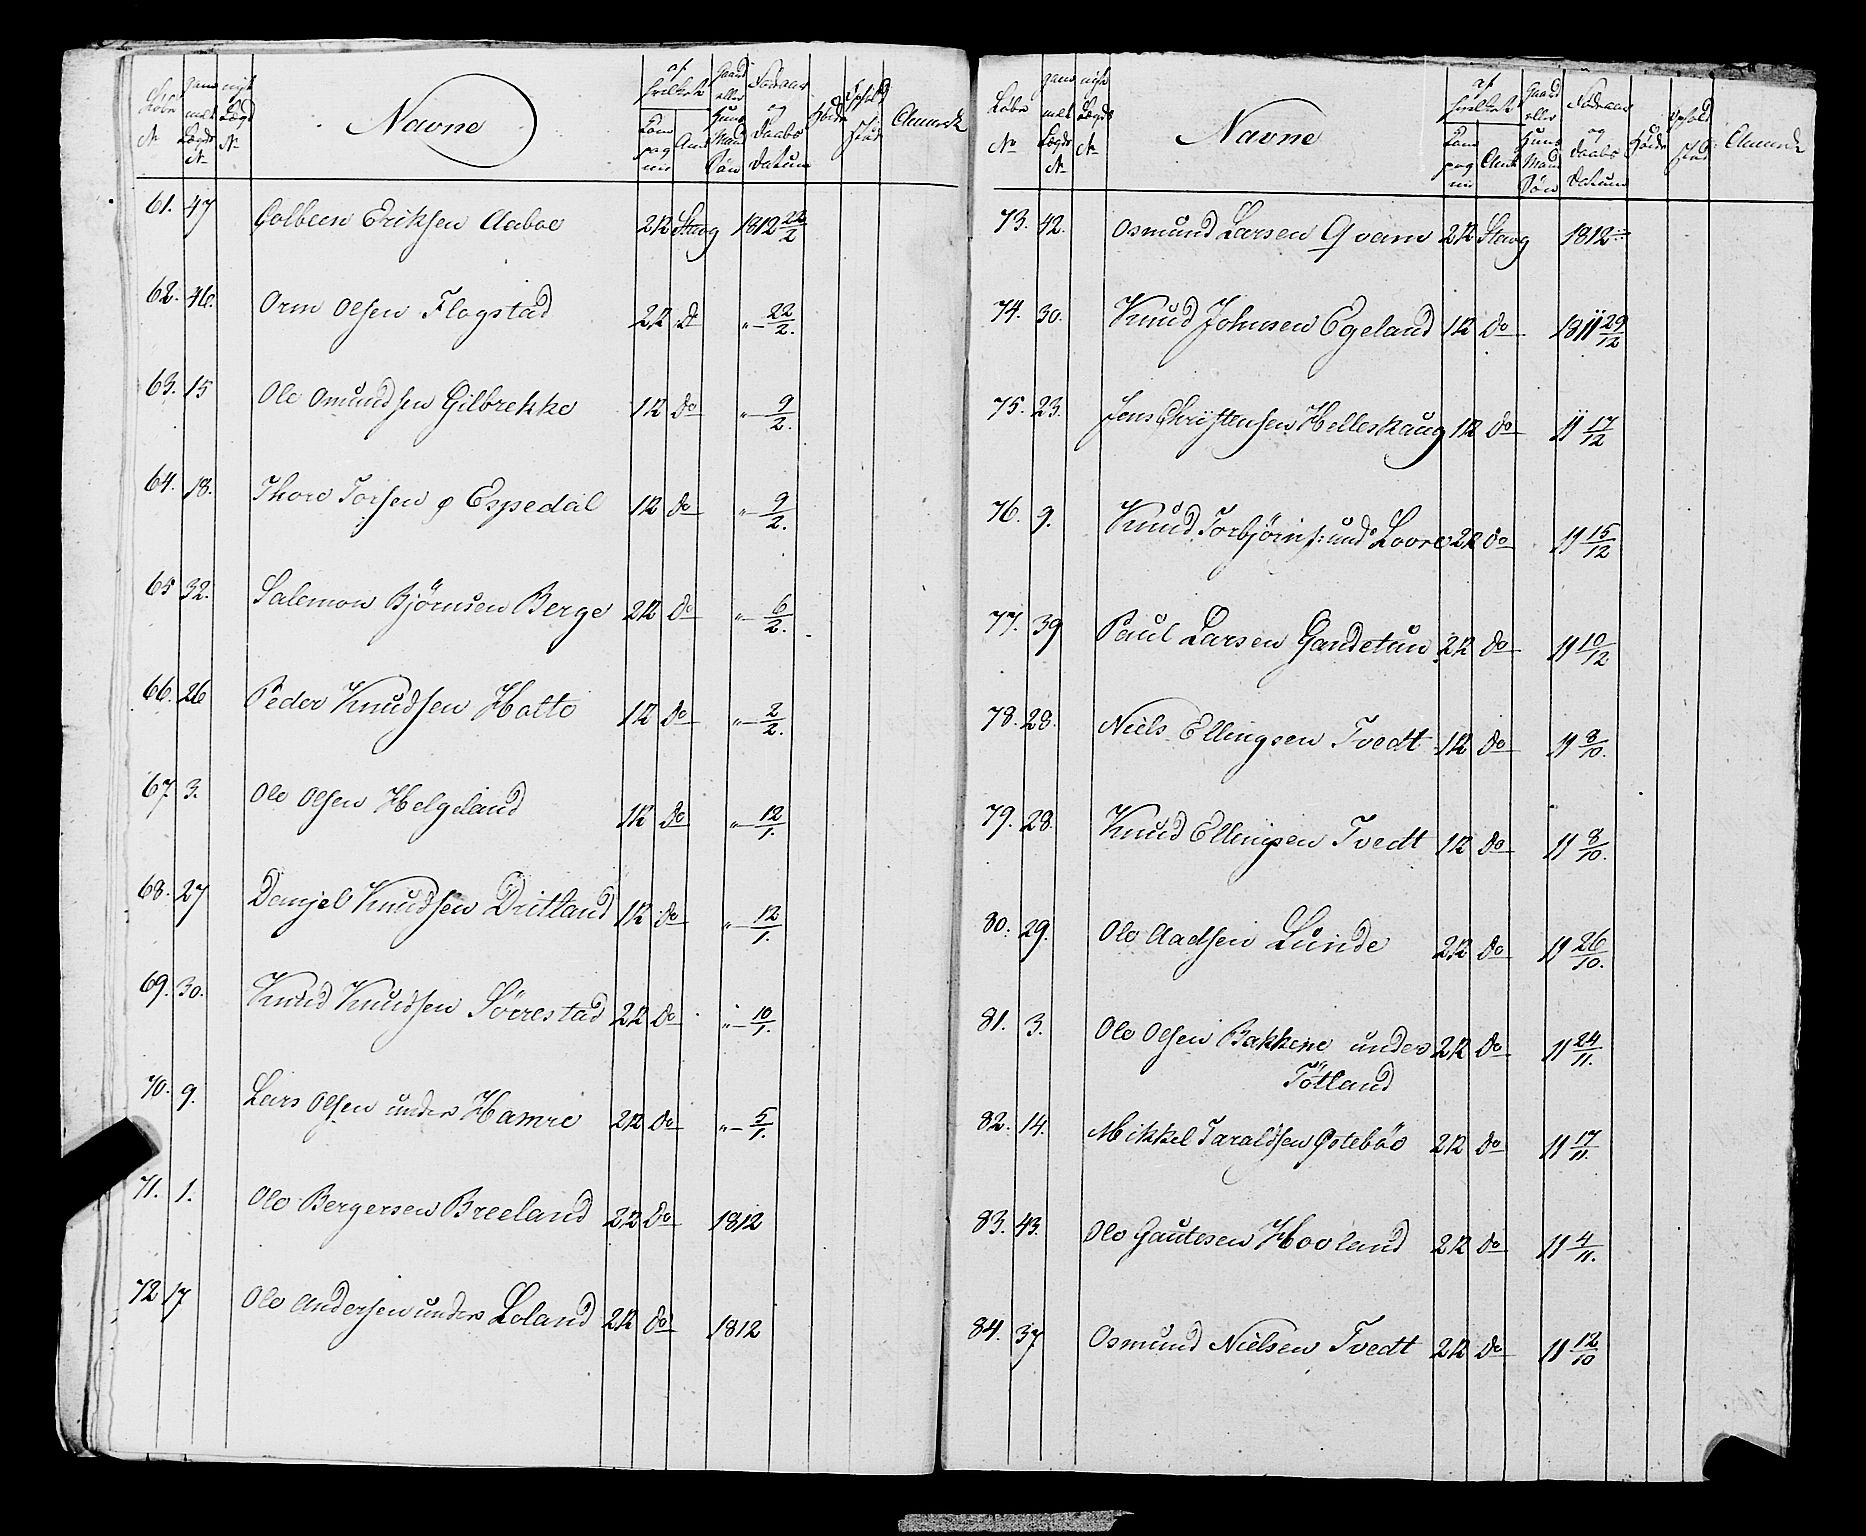 Løbe N
gam melt Lægds N
nyt Lægd N
Navne
af hvilket
Com pag nie
Amt
Gaard eller Huus Mand Søn
Födsaar og Daabs Datum
Høide
Ophold sted
Anmærk
61. 47 Colbeen Eriksen Aaboe 2 K Stavg 1812 22/2
62. 46. Orm Olsen Flogstad 2 K do „ 22/2.
63. 15 Ole Omundsen Gilbrekke 1 K do „ 9/2.
64. 18. Thore Torsen Espedal 1 K do „ 9/2.
65 32. Salemon Bjørnsen Berge 2 K do „ 6/2.
66. 26 Peder Knudsen Hatte 1 K do „ 2/2.
67. 3. Ole Olsen Helgeland 1 K do „ 12/1.
68. 27 Danjel Knudsen Dritland 1 K do „ 12/1.
69. 30. Knud Knudsen Sörrestad 2 K do „ 10/1.
70. 9. Lars Olsen under Hamre 2 K do „ 5/1.
71. 1. Ole Bergersen Breeland 2 K do 1812
72 17 Ole Andersen under Loland 2 K do 1812
Løbe No
gam melt Lægds N
nyt Lægds N
Navne
af hvilket
Com pag nie
Amt
Gaard eller Huus Mand Søn
Födsaar og Daabs Datum
Høide
Ophold sted
Anmærk
73. 42. Osmund Larsen Qvam 2 K Stavg 1812
74. 30. Knud Johnsen Egeland 1 K do 1811 29/12
75. 23. Jens Christensen Helleskaug 1 K do 11 17/12
76. 9. Knud Torbjörns: und Lovre 2 K do 11 15/12
77. 39 Paul Larsen Gandetun 2 K do 11 10/12
78. 28. Niels Ellingsen Tvedt 1 K do 11 8/10.
79. 28. Knud Ellingsen Tvedt 1 K do 11 8/10.
80. 29. Ole Aadsen Lunde 2 K do 11 26/10.
81. 3. Ole Olsen Bakkene under 2 K do 11 24/11.
Tötland
82. 14. Mikkel Taraldsen Østebøe 2 K do 11 17/11.
83. 43. Ole Gautesen Hovland 2 K do 11 4/11.
84. 37 Osmund Nielsen Tvedt 2 K do 11 12/10